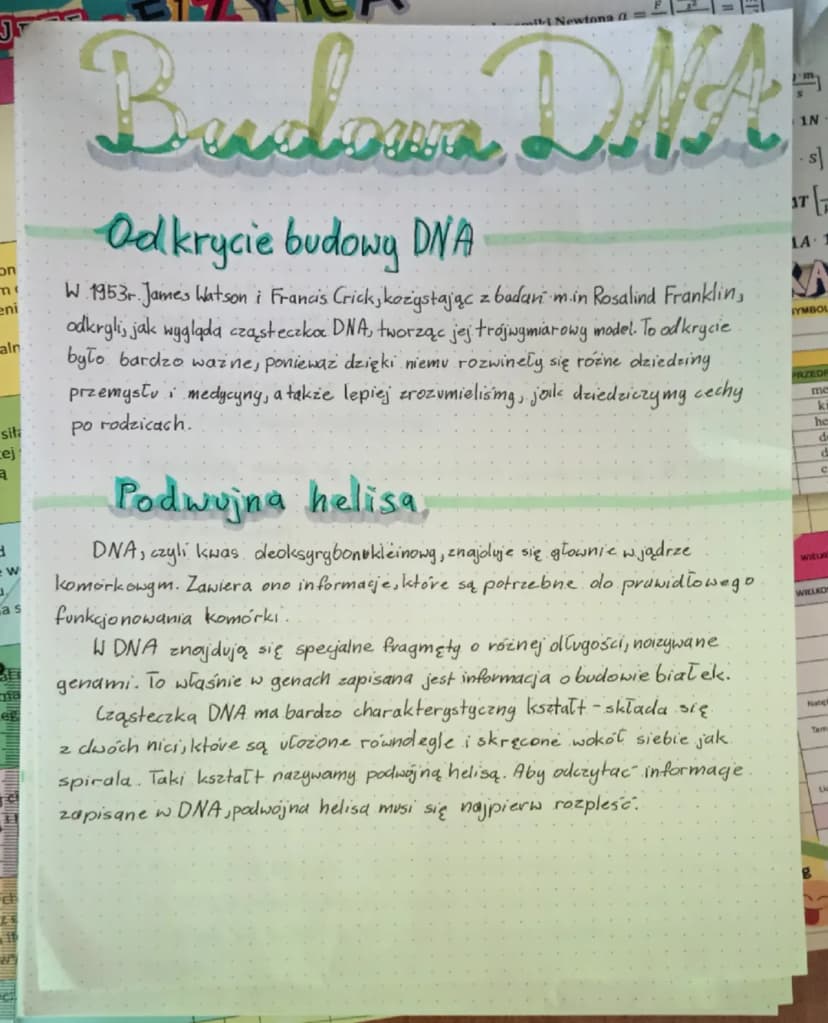 FIZYKA
Newtona a =
Budowa DNA
Odkrycie budowy DNA
W 1953r. James Watson i Francis Crick, kozystając z badań m.in Rosalind Franklin,
odkryli, jak wygląda cząsteczka DNA, tworząc jej trójwymiarowy model. To odkrycie
było bardzo ważne, ponieważ dzięki niemu rozwineły się różne dziedziny
przemysłu i medycyny, a także lepiej zrozumieliśmy, jak dziedziczymy cechy
po rodzicach.
Podwujna helisa
DNA, czyli kwas deoksyrybonukleinowy, znajduje się głownie w jądrze
komórkowym. Zawiera ono informacje, które są potrzebne do prawidłowego
funkcjonowania komórki.
W DNA znajdują się specjalne fragmęty o różnej długości, nazywane
genami. To właśnie w genach zapisana jest informacja o budowie białek.
Cząsteczka DNA ma bardzo charakterystyczny kształt - składa się
z dwóch nici, które są ułożone równolegle i skręcone wokół siebie jak
spirala. Taki kształt nazywamy podwójną helisą. Aby odczytać informacje
zapisane w DNA, podwójna helisa musi się najpierw rozpleść.
1N